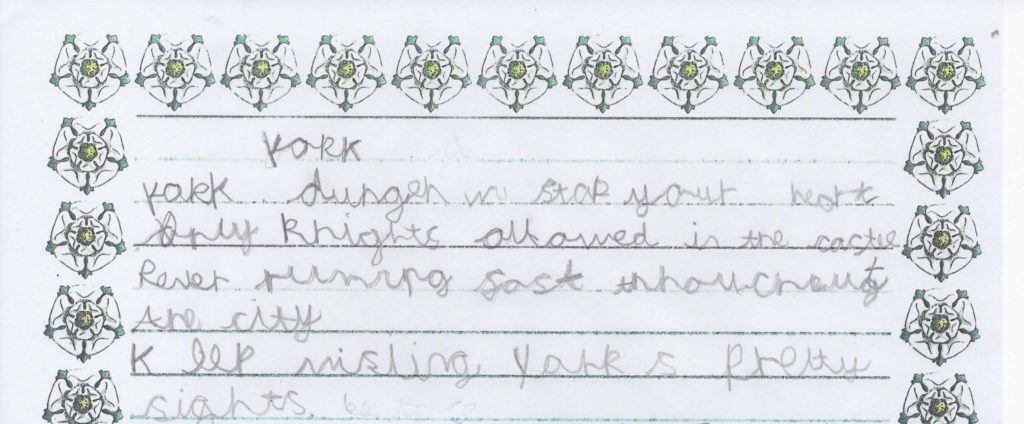 York
York dungen wi stop your hert
Only Knights allowed in the castle
River running fast
the city
Keep visiting York s pretty
sights.